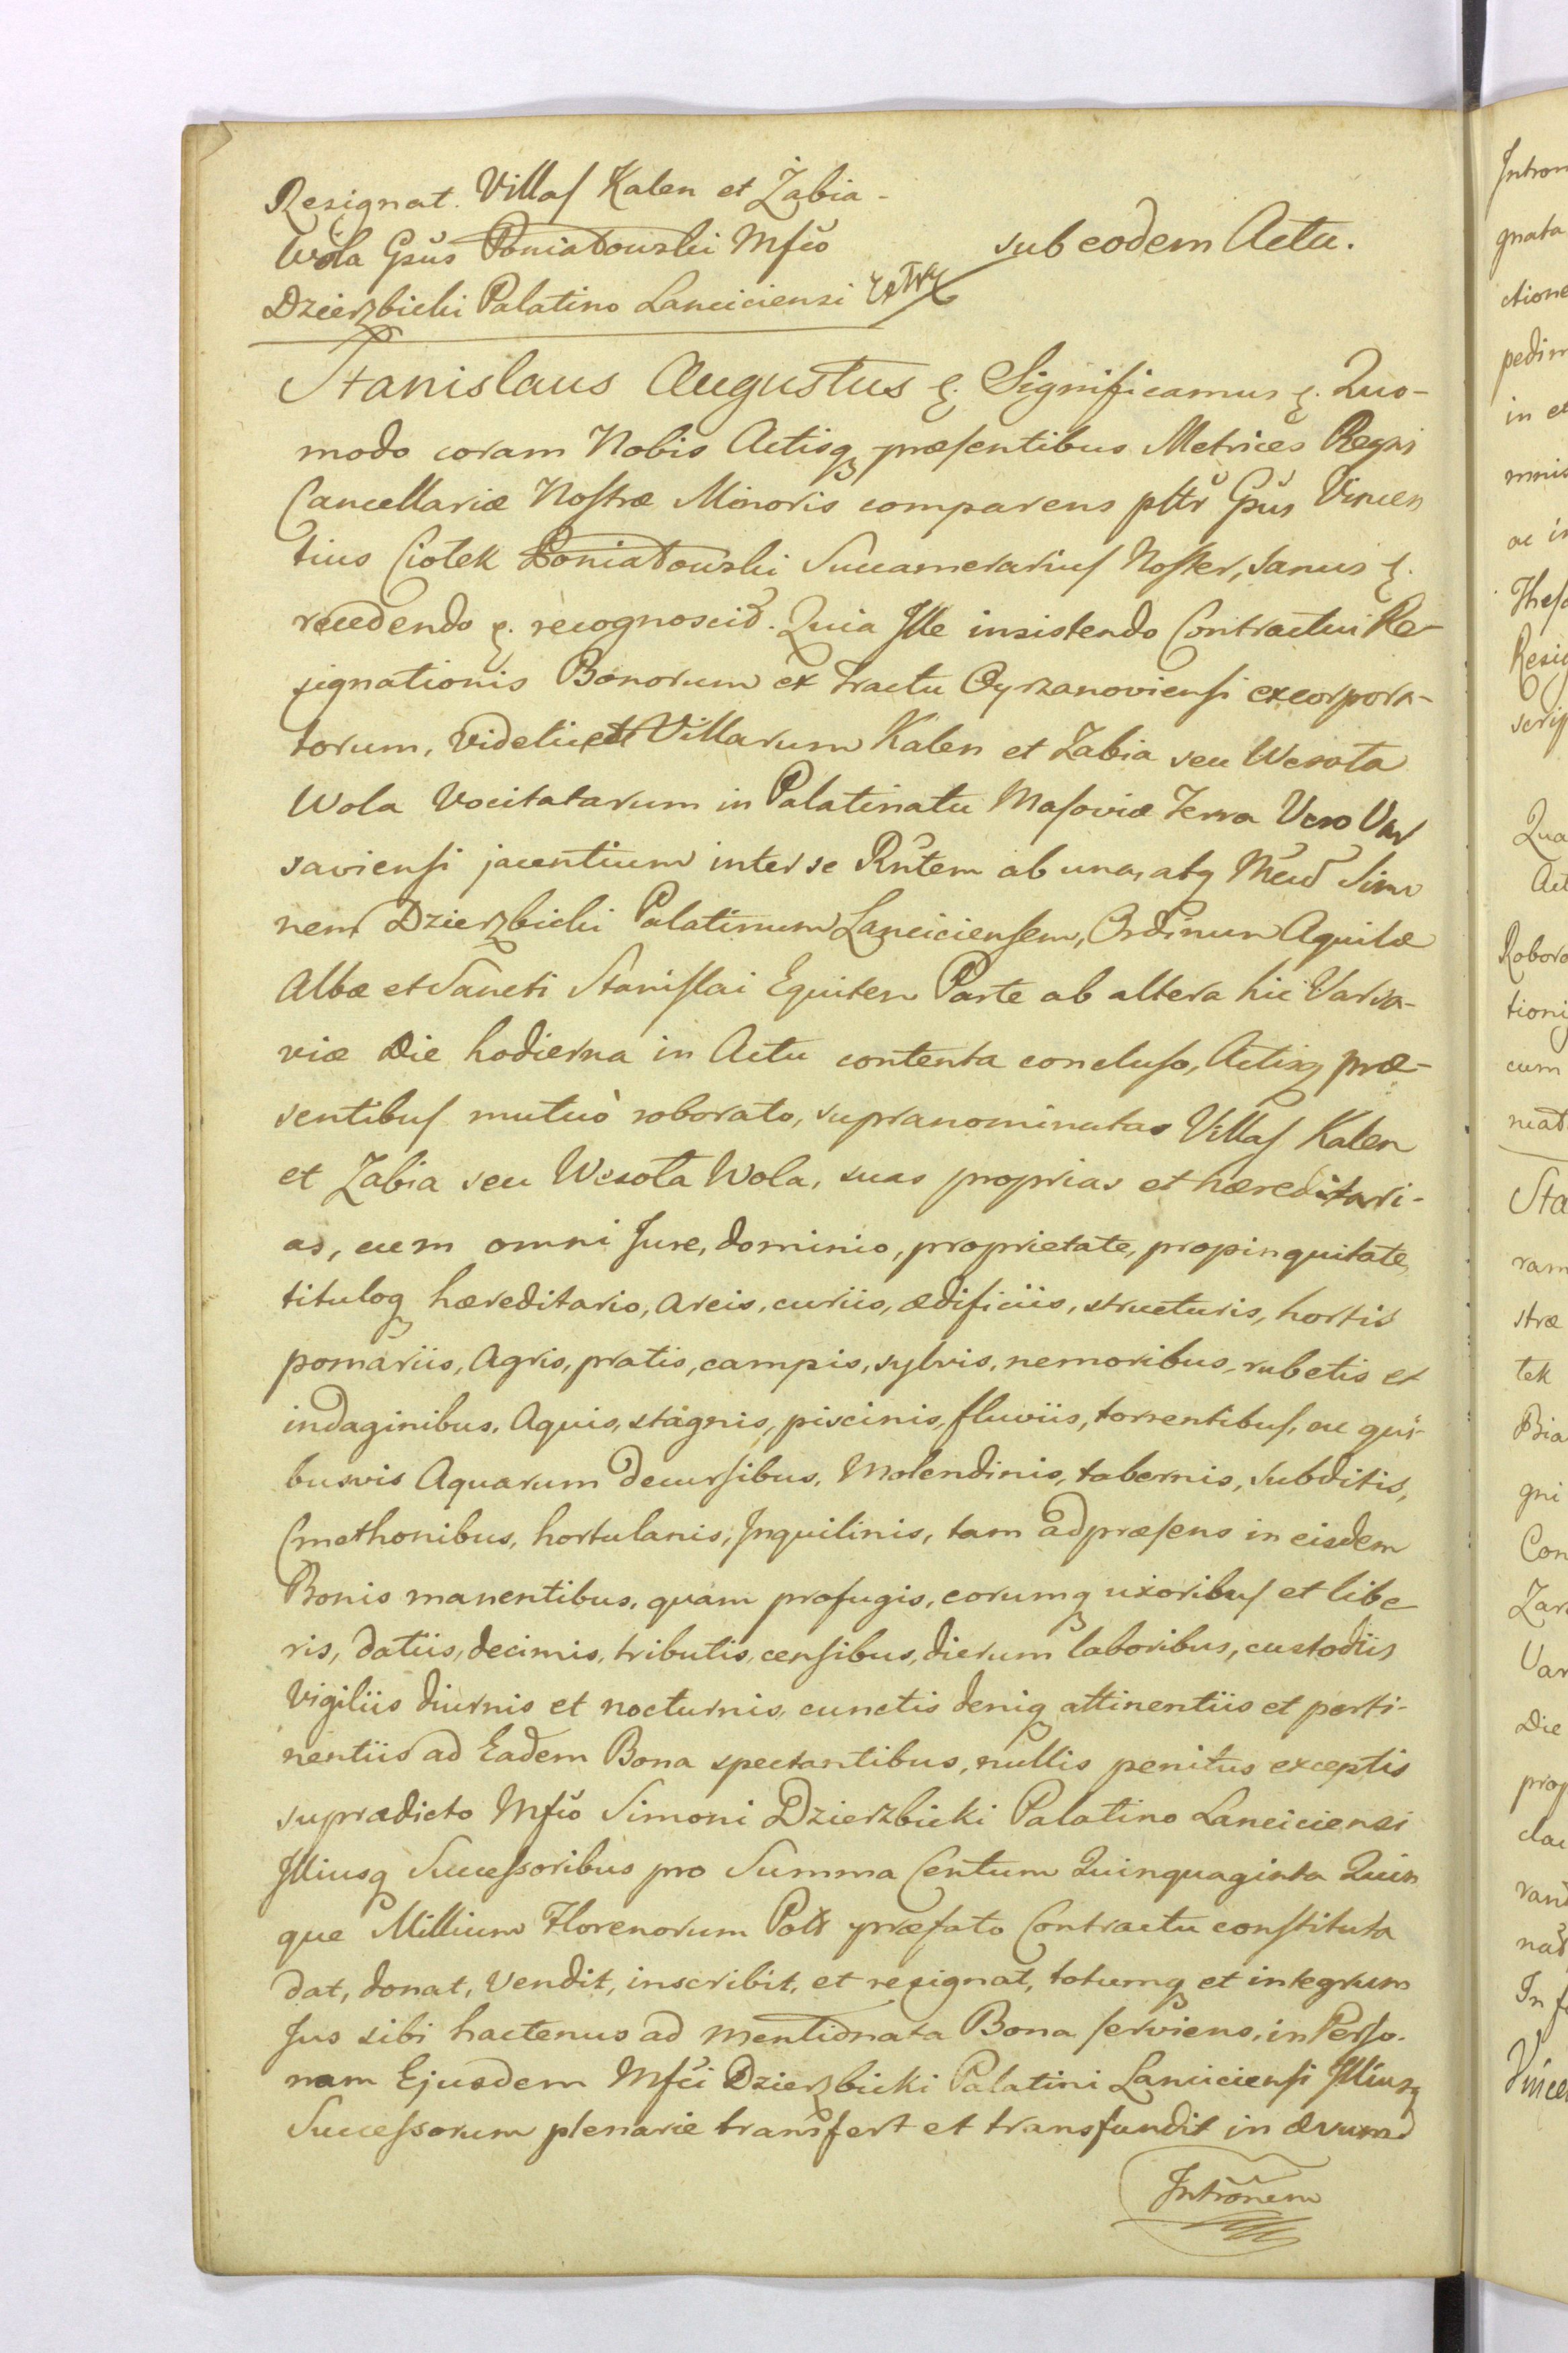 Resignat. Villas Kalen et Żabia-
Wola Gsūs Poniatowski Mfčo
sub eodem Actu.
Dzierzbicki Palatino Lanciciensi
Stanislaus Augustus &. Significamus &. Quo-
modo coram Nobis Actisq præsentibus Metrices Regni
Cancellariæ Nostræ Minoris comparens pltr Gsus Vincen
tius Ciołek Poniatowski Succamerarius Noster, sanus &.
recedendo &. recognoscit. Quia Ille insistendo Contractui Re-
signationis Bonorum ex tractu Oyrzanoviensi excorpora-
torum, videlicet Villarum Kalen et Zabia seu Wesoła
Wola Vocitatarum in Palatinatu Masoviæ Terra Vero Var
saviensi jacentium inter se Rñtem ab una, atq Mcum Simo
nem Dzierzbicki Palatinum Lanciciensem, Ordinum Aquilæ
Albæ et Sancti Stanislai Equitem Parte ab altera hic Varsa-
viæ Die hodierna in Actu contenta concluso, Actisq præ-
sentibus mutuò roborato, supranominatas Villas Kalen
et Zabia seu Wesoła Wola, suas proprias et hæreditari-
as, cum omni Jure, dominio, proprietate, propinquitate,
tituloq hæreditario, areis, curiis, ædificiis, structuris, hortis
pomariis, Agris, pratis, campis, sylvis, nemoribus, rubetis et
indaginibus, Aquis, stagnis, piscinis, fluviis, torrentibus, ac qui-
busvis Aquarum decursibus, Molendinis, tabernis, subditis,
Cmethonibus, hortulanis, Inquilinis, tam ad præsens in eisdem
Bonis manentibus, quam profugis, eorumq uxoribus et libe
ris, datiis, decimis, tributis, censibus, dierum laboribus, custodiis
Vigiliis diurnis et nocturnis, cunctis deniq attinentiis et perti-
nentiis ad Eadem Bona spectantibus, nullis penitus exceptis
supradicto Mfčo Simoni Dzierzbicki Palatino Lanciciensi
Illiusq Successoribus pro Summa Centum Quinquaginta Quin
que Millium Florenorum Polł præfato Contractu constituta
dat, donat, Vendit, inscribit, et resignat, totumq et integrum
Jus sibi hactenus ad mentionata Bona serviens, in Perso-
nam Ejusdem Mfči Dzierzbicki Palatini Lanciciensi Illiusq
Successorum plenarie transfert et transfundit in ævum
Intronem